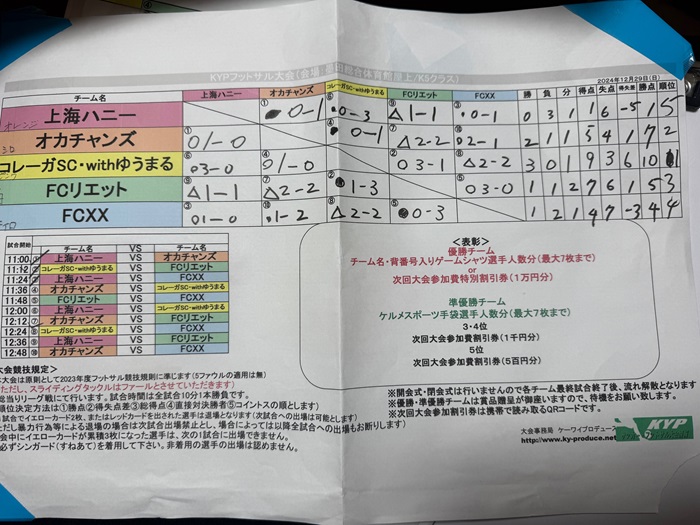 KYPフットサル大会(会場:墨田総合体育館屋上/K5クラス)
2024年12月29日(日)
チーム名 上海ハニー オカチャンズ コレーガSC・withゆうまる FCリエット FCXX 勝 負 分 得点 失点 得失差 勝点 順位
上海ハニー ① ●0-1 ⑥ ●0-3 ⑨ △1-1 ③ ●0-1 0 3 1 1 6 -5 1 5
オカチャンズ ① ○1-0 ④ ●0-1 ⑦ △2-2 ⑩ ○2-1 2 1 1 5 4 1 7 2
コレーガSC・withゆうまる ⑥ ○3-0 ④ ○1-0 ② ○3-1 ⑧ △2-2 3 0 1 9 3 6 10 1
FCリエット ⑨ △1-1 ⑦ △2-2 ② ●1-3 ⑤ ○3-0 1 1 2 7 6 1 5 3
FCXX ③ ○1-0 ⑩ ●1-2 ⑧ △2-2 ⑤ ●0-3 1 2 1 4 7 -3 4 4
試合開始 チーム名 VS チーム名
11:00 ① 上海ハニー VS オカチャンズ
11:12 ② コレーガSC・withゆうまる VS FCリエット
11:24 ③ 上海ハニー VS FCXX
11:36 ④ オカチャンズ VS コレーガSC・withゆうまる
11:48 ⑤ FCリエット VS FCXX
12:00 ⑥ 上海ハニー VS コレーガSC・withゆうまる
12:12 ⑦ オカチャンズ VS FCリエット
12:24 ⑧ コレーガSC・withゆうまる VS FCXX
12:36 ⑨ 上海ハニー VS FCリエット
12:48 ⑩ オカチャンズ VS FCXX
<表彰>
優勝チーム
チーム名・背番号入りゲームシャツ選手人数分(最大7枚まで)
or
次回大会参加費特別割引券(1万円分)
準優勝チーム
ケルメスポーツ手袋選手人数分(最大7枚まで)
3・4位
次回大会参加費割引券(1千円分)
5位
次回大会参加費割引券(5百円分)
大会競技規定>
本大会は原則として2023年度フットサル競技規則に準じます(5ファウルの適用は無)
ただし、スライディングタックルはファールとさせていただきます)
総当りリーグ戦にて行います。試合時間は全試合10分1本勝負です。
順位決定方法は①勝点②得失点差③総得点④直接対決勝者⑤コイントスの順とします)
試合でイエローカード2枚、またはレッドカードを出された選手は退場となります(次試合への出場は可能とします)
ただし暴力行為等による退場の場合は次試合出場禁止とし、場合によっては以降全試合への出場もお断りします)
会中にイエローカードが累積3枚になった選手は、次の1試合に出場できません。
必ずシンガード(すねあて)を着用して下さい。非着用の選手の出場は認めません。
※開会式・閉会式は行いませんので各チーム最終試合終了後、流れ解散となります
※優勝・準優勝チームは賞品贈呈が御座いますので、待機をお願い致します。
※次回大会参加費割引券は携帯で読み取るQRコードです。
大会事務局 ケーワイプロデュース
http://www.ky-produce.net
KYP